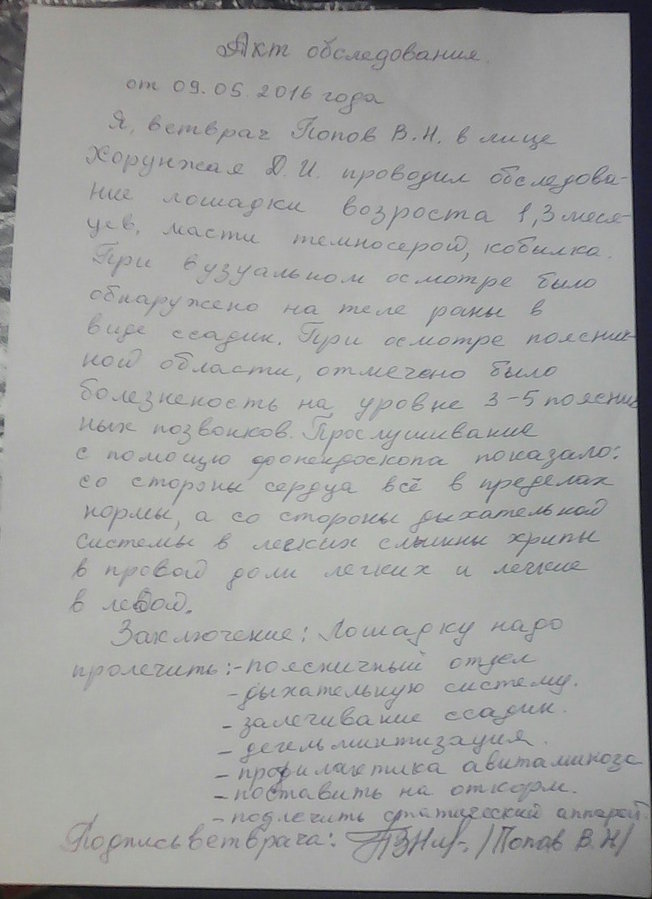 Акт обследования.
от 09.05.2016 года
Я, ветврач Попов В.Н. в лице
Хорунжая Д.И. проводил обследова-
ние лошадки возроста 1,3 меся-
цев, масти темносерой, кобылка.
При вузуальном осмотре было
обнаружено на теле раны в
виде ссадин. При осмотре пояснич-
ной области, отмечено было
болезненость на уровне 3-5 поясни
ных позвонков. Прослушивание
с помощю фонендоскопа показало:
со стороны сердца всё в пределах
нормы, а со стороны дыхательной
системы в легких слышны хрипы
в правой доли легких и легкие
в левой.
Заключение: Лошадку надо
пролечить: - поясничный отдел
- дыхательную систему.
- залечивание ссадин.
- дегельминтизация.
- профилактика авитаминоза
- поставить на откорм.
- подлечить статический аппарат.
Подпись ветврача: /Попов В.Н/